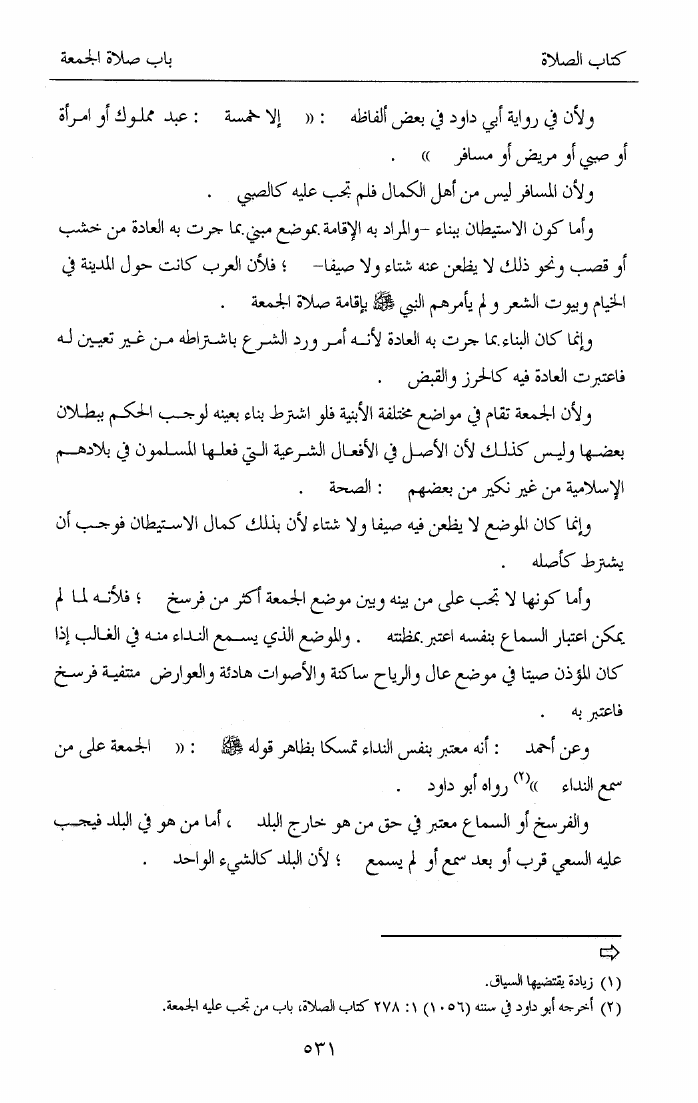 كتاب الصلاة باب صلاة الجمعة
ولأن في رواية أبي داود في بعض ألفاظه : « إلا خمسة : عبد مملوك أو امرأة
أو صبي أو مريض أو مسافر » .
ولأن المسافر ليس من أهل الكمال فلم تجب عليه كالصبي .
وأما كون الاستيطان ببناء -والمراد به الإقامة بموضع مبني بما جرت به العادة من خشب
أو قصب ونحو ذلك لا يظعن عنه شتاء ولا صيفا- ؛ فلأن العرب كانت حول المدينة في
الخيام وبيوت الشعر و لم يأمرهم النبي ﷺ بإقامة صلاة الجمعة .
وإنما كان البناء بما جرت به العادة لأنه أمر ورد الشرع باشتراطه من غير تعيين له
فاعتبرت العادة فيه كالحرز والقبض .
ولأن الجمعة تقام في مواضع مختلفة الأبنية فلو اشترط بناء بعينه لوجب الحكم ببطلان
بعضها وليس كذلك لأن الأصل في الأفعال الشرعية التي فعلها المسلمون في بلادهم
الإسلامية من غير نكير من بعضهم : الصحة .
وإنما كان الموضع لا يظعن فيه صيفا ولا شتاء لأن بذلك كمال الاستيطان فوجب أن
يشترط كأصله .
وأما كونها لا تجب على من بينه وبين موضع الجمعة أكثر من فرسخ ؛ فلأنه لما لم
يمكن اعتبار السماع بنفسه اعتبر بمظنته . والموضع الذي يسمع النداء منه في الغالب إذا
كان المؤذن صيتا في موضع عال والرياح ساكنة والأصوات هادئة والعوارض منتفية فرسخ
فاعتبر به .
وعن أحمد : أنه معتبر بنفس النداء تمسكا بظاهر قوله ﷺ : « الجمعة على من
سمع النداء »(٢) رواه أبو داود .
والفرسخ أو السماع معتبر في حق من هو خارج البلد ، أما من هو في البلد فيجب
عليه السعي قرب أو بعد سمع أو لم يسمع ؛ لأن البلد كالشيء الواحد .
⇨
(١) زيادة يقتضيها السياق.
(٢) أخرجه أبو داود في سننه (١٠٥٦) ١: ٢٧٨ كتاب الصلاة، باب من تجب عليه الجمعة.
٥٣١